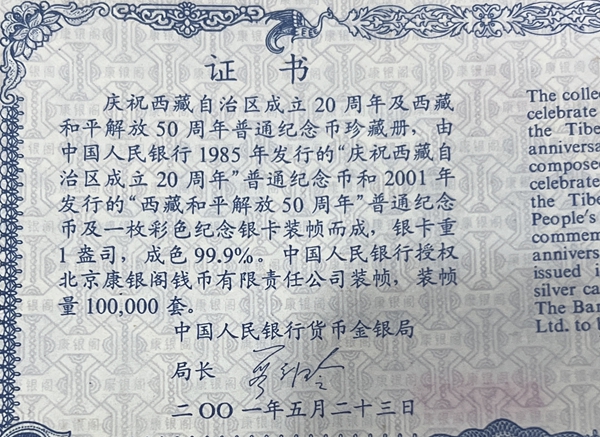 证 书
庆祝西藏自治区成立 20 周年及西藏
和平解放 50 周年普通纪念币珍藏册，由
中国人民银行 1985 年发行的“庆祝西藏自
治区成立 20 周年”普通纪念币和 2001 年
发行的“西藏和平解放 50 周年”普通纪念
币及一枚彩色纪念银卡装帧而成，银卡重
1 盎司，成色 99.9%。中国人民银行授权
北京康银阁钱币有限责任公司装帧，装帧
量 100,000 套。
中国人民银行货币金银局
局长
二〇〇一年五月二十三日
The colle
celebrate
the Tibe
anniversa
composed
celebrate
the Tibe
People's
commem
anniversa
issued i
silver ca
The Ban
Ltd. to b